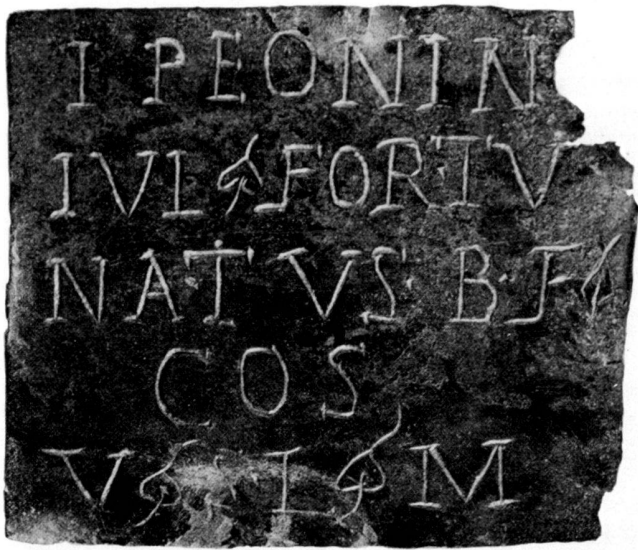 I PEONIN
IVL ❧ FORTV
NATVS· B·F ❧
COS
V ❧ L ❧ M